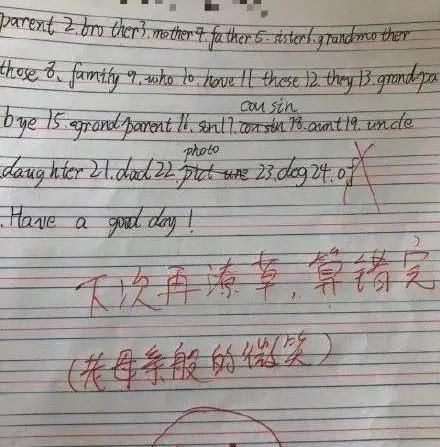 parent 2. brother 3. mother 4. father 5. sister 6. grandmother
those 8. family 9. who 10. have 11. these 12. they 13. grandpa
cousin
bye 15. grandparent 16. son 17. cousin 18. aunt 19. uncle
photo
daughter 21. dad 22. picture 23. dog 24. of
. Have a good day!
下次再潦草,算错完
(老母亲般的微笑)